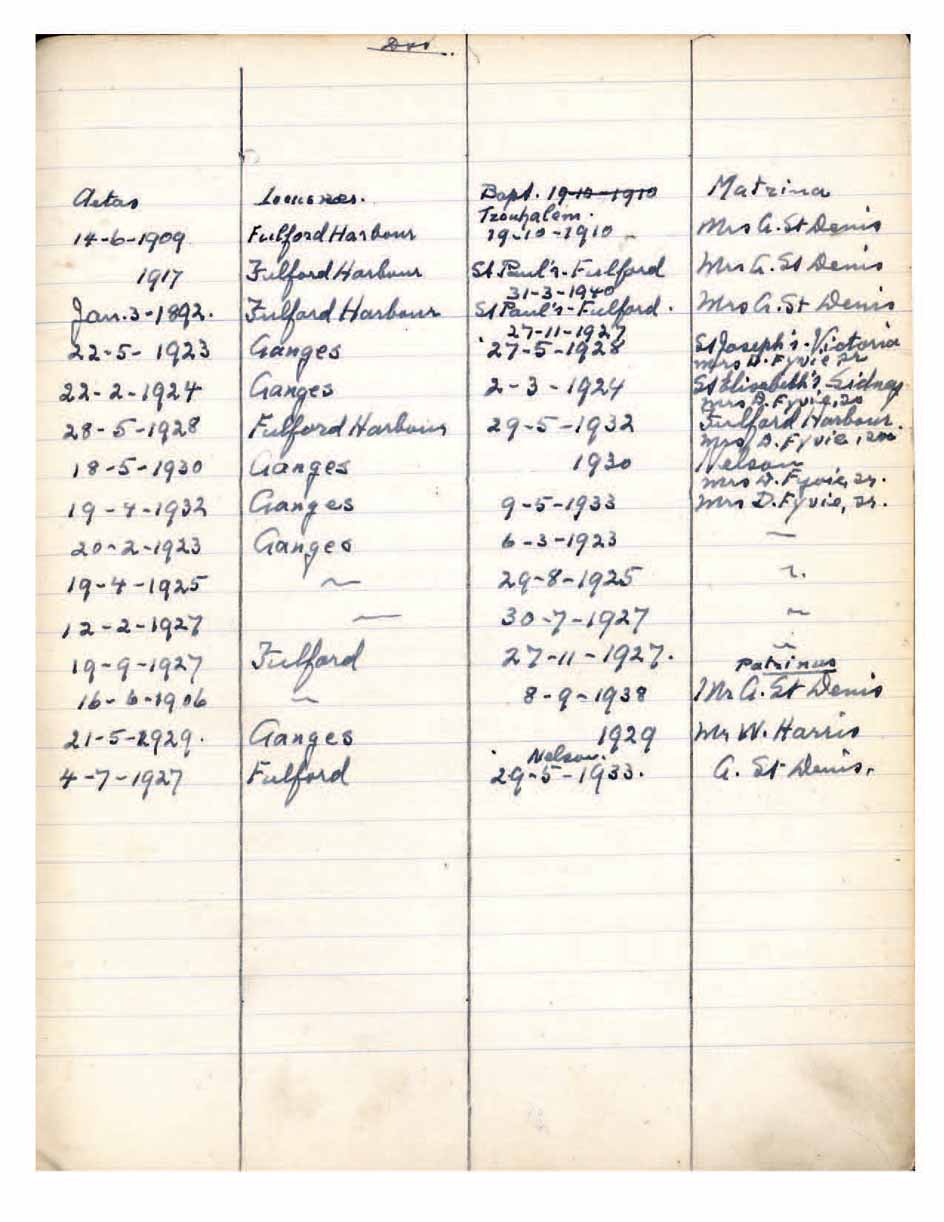 Aetas Bapt. 19-10-1910 Matrina
Tzouhalem.
14-6-1909 Fulford Harbour 19-10-1910 Mrs G. St Denis
1917 Fulford Harbour St Paul's-Fulford Mrs G. St Denis
31-3-1940
Jan. 3-1892. Fulford Harbour St Paul's-Fulford. Mrs G. St Denis
27-11-1927
22-5-1923 Ganges 27-5-1928 St Joseph's-Victoria
Mrs D. Fyvie Sr
22-2-1924 Ganges 2-3-1924 St Elisabeth's-Sidney
Mrs D. Fyvie, Sr
28-5-1928 Fulford Harbour 29-5-1932 Fulford Harbour.
Mrs D. Fyvie,
18-5-1930 Ganges 1930 Nelson
Mrs D. Fyvie, Sr.
19-4-1932 Ganges 9-5-1933 Mrs D. Fyvie, Sr.
20-2-1923 Ganges 6-3-1923 ~
19-4-1925 ~ 29-8-1925 ~
12-2-1927 ~ 30-7-1927 ~
19-9-1927 Fulford 27-11-1927. ~
Patrinus
16-6-1906 ~ 8-9-1938 Mr G. St Denis
21-5-1929. Ganges 1929 Mr W. Harris
Nelson.
4-7-1927 Fulford 29-5-1933. G. St Denis.